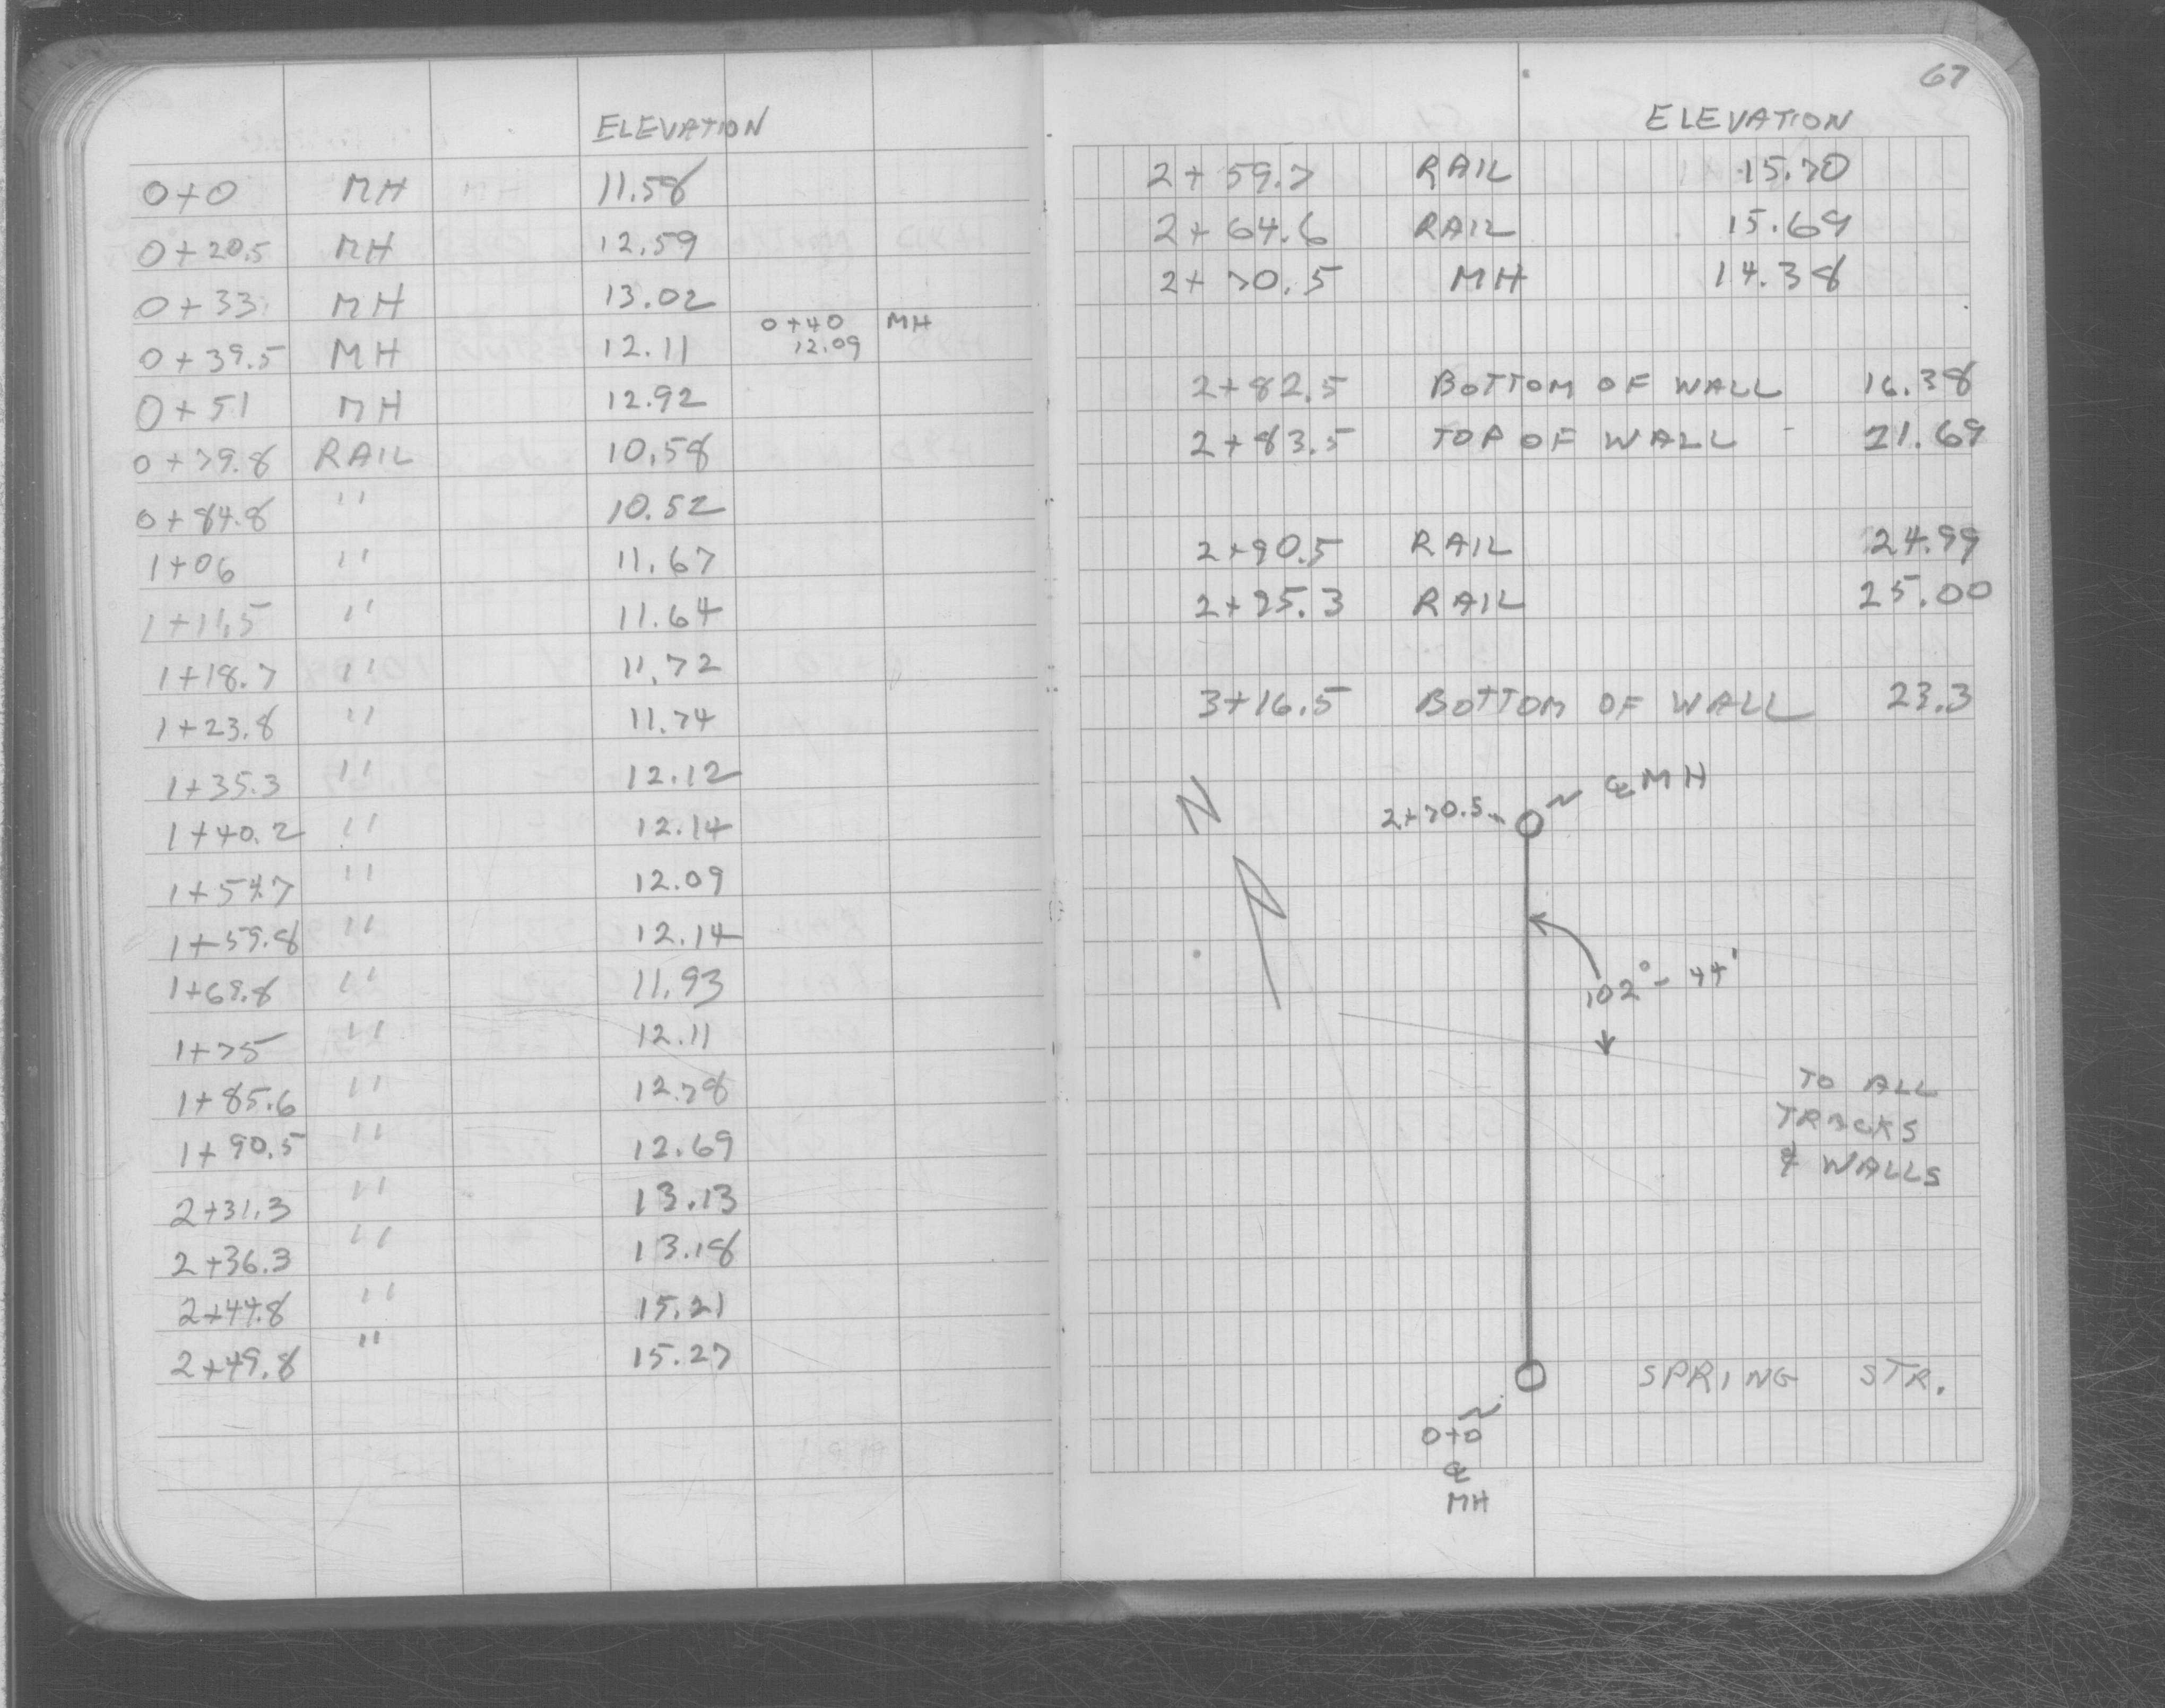 ELEVATION
0+0 MH 11.58
0+20.5 MH 12.59
0+33 MH 13.02
0+40 MH
12.09
0+39.5 MH 12.11
0+51 MH 12.92
0+79.8 RAIL 10.58
0+84.8 " 10.52
1+06 " 11.67
1+11.5 " 11.64
1+18.7 " 11.72
1+23.8 " 11.74
1+35.3 " 12.12
1+40.2 " 12.14
1+54.7 " 12.09
1+59.8 " 12.14
1+69.8 " 11.93
1+75 " 12.11
1+85.6 " 12.78
1+90.5 " 12.69
2+31.3 " 13.13
2+36.3 " 13.18
2+44.8 " 15.21
2+49.8 " 15.27
67
ELEVATION
2+59.7 RAIL 15.70
2+64.6 RAIL 15.69
2+70.5 MH 14.38
2+82.5 BOTTOM OF WALL 16.38
2+83.5 TOP OF WALL - 21.69
2+90.5 RAIL 24.99
2+95.3 RAIL 25.00
3+16.5 BOTTOM OF WALL 23.3
N
2+70.5 ℄ MH
102°-44'
TO ALL
TRACKS
& WALLS
SPRING STR.
0+0
℄
MH